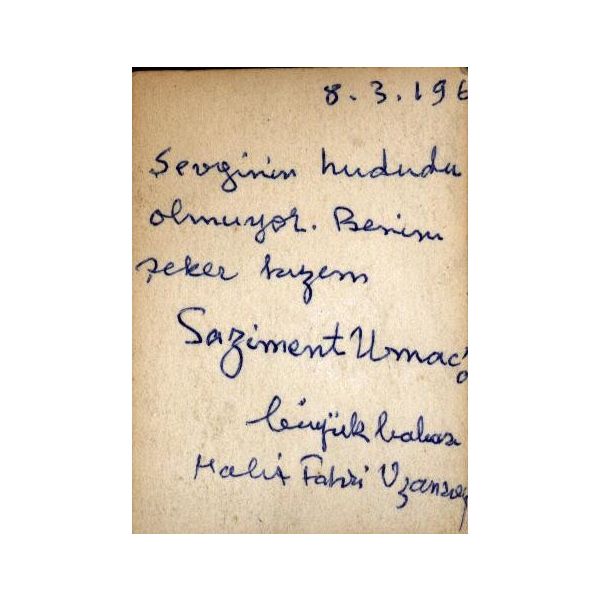 8.3.196
Sevginin hududu
olmuyor. Benim
şeker kızım
Saziment Umaç'a
büyük babası
Halit Fahri Ozansoy